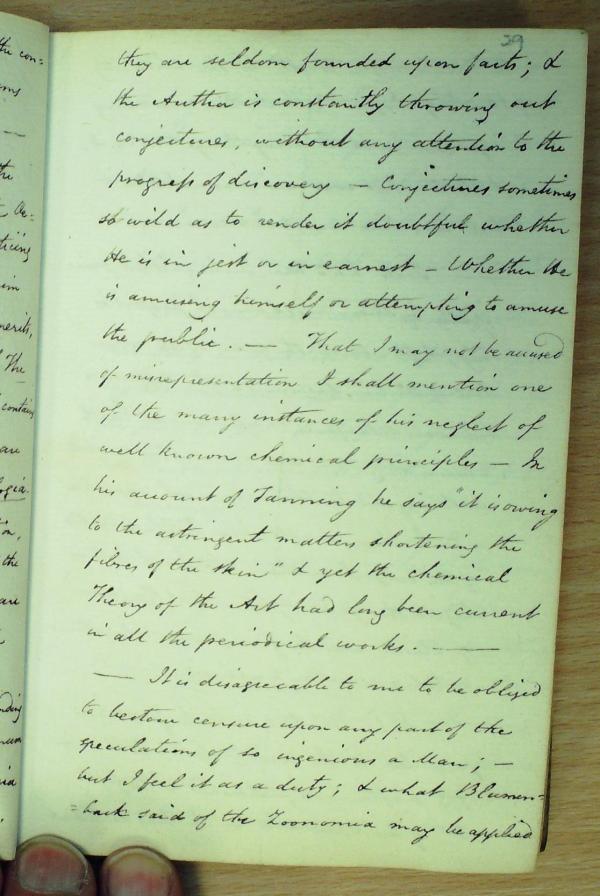 39
they are seldom founded upon facts; &
the Author is constantly throwing out
conjectures, without any attention to the
progress of discovery — Conjectures sometimes
so wild as to render it doubtful whether
He is in jest or in earnest – Whether He
is amusing himself or attempting to amuse
the public. — That I may not be accused
of misrepresentation I shall mention one
of the many instances of his neglect of
well known chemical principles — In
his account of Tanning he says "it is owing
to the astringent matters shortening the
fibres of the skin" & yet the chemical
Theory of the Art had long been current
in all the periodical works. ——
— It is disagreeable to me to be obliged
to bestow censure upon any part of the
speculations of so ingenious a Man; –
but I feel it as a duty; & what Blumen=
=back said of the Zoonomia may be applied
the con=
the
are
the
are